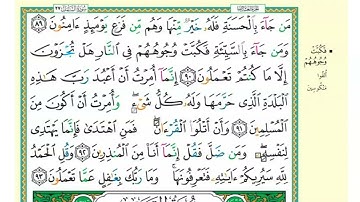 مَن جَآءَ بِٱلْحَسَنَةِ فَلَهُۥ خَيْرٌ مِّنْهَا وَهُم مِّن فَزَعٍ يَوْمَئِذٍ ءَامِنُونَ ٨٩
وَمَن جَآءَ بِٱلسَّيِّئَةِ فَكُبَّتْ وُجُوهُهُمْ فِى ٱلنَّارِ هَلْ تُجْزَوْنَ
إِلَّا مَا كُنتُمْ تَعْمَلُونَ ٩٠ إِنَّمَآ أُمِرْتُ أَنْ أَعْبُدَ رَبَّ هَٰذِهِ
ٱلْبَلْدَةِ ٱلَّذِى حَرَّمَهَا وَلَهُۥ كُلُّ شَىْءٍ وَأُمِرْتُ أَنْ أَكُونَ مِنَ
ٱلْمُسْلِمِينَ ٩١ وَأَنْ أَتْلُوَا۟ ٱلْقُرْءَانَ فَمَنِ ٱهْتَدَىٰ فَإِنَّمَا يَهْتَدِى
لِنَفْسِهِۦ وَمَن ضَلَّ فَقُلْ إِنَّمَآ أَنَا۠ مِنَ ٱلْمُنذِرِينَ ٩٢ وَقُلِ ٱلْحَمْدُ
لِلَّهِ سَيُرِيكُمْ ءَايَٰتِهِۦ فَتَعْرِفُونَهَا وَمَا رَبُّكَ بِغَٰفِلٍ عَمَّا تَعْمَلُونَ ٩٣
فَكُبَّتْ
وُجُوهُهُمْ
أُلقوا
منكوسين